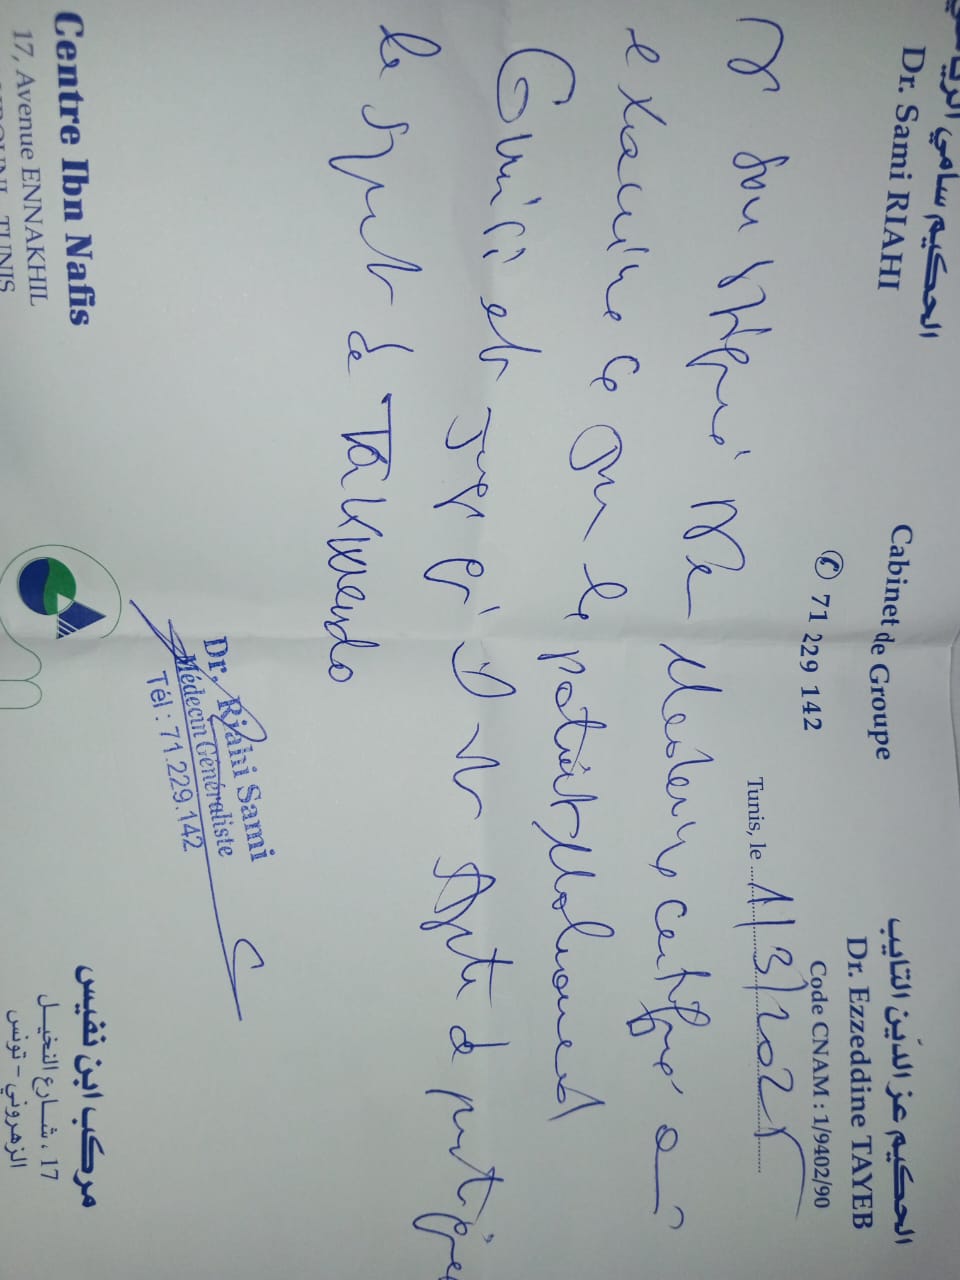 الحكيم سامي الرياحي
Dr. Sami RIAHI
Cabinet de Groupe
✆ 71 229 142
الحكيم عز الدين التايب
Dr. Ezzeddine TAYEB
Code CNAM : 1/9402/90
Tunis, le 1/3/2025
Je soussigné Dr en Médecine certifie a
examiné ce jour le patient Mohamed
et juge qu'il est apte à participer
le sport de Taekwondo
Dr. Riahi Sami
Médecin Généraliste
Tél : 71.229.142
Centre Ibn Nafis
17, Avenue ENNAKHIL
TUNIS
مركب ابن نفيس
17 ، شارع النخيل
الزهروني - تونس